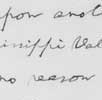 upon ano
issippi Val
no reason